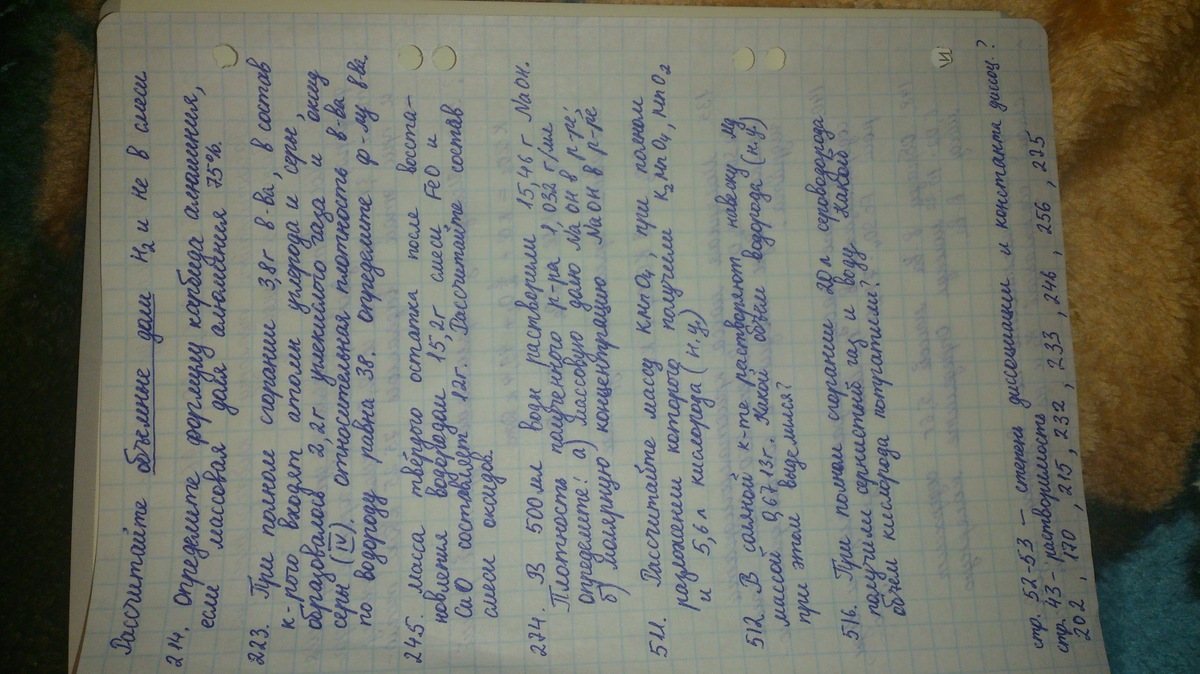 Рассчитайте объёмные доли H₂ и He в смеси
214. Определите формулу карбида алюминия,
если массовая доля алюминия 75%.
223. При полном сгорании 3,8г в-ва, в состав
к-рого входят атомы углерода и серы,
образовалось 2,2г углекислого газа и оксид
серы (IV). Относительная плотность в-ва
по водороду равна 38. Определите ф-лу в-ва.
245. Масса твёрдого остатка после восста-
новления водородом 15,2г смеси FeO и
CuO составляет 12г. Рассчитайте состав
смеси оксидов.
274. В 500мл воды растворили 15,46 г NaOH.
Плотность полученного р-ра 1,032 г/мл
Определите: а) массовую долю NaOH в р-ре;
б) молярную концентрацию NaOH в р-ре
511. Рассчитайте массу KMnO₄, при полном
разложении которого получили K₂MnO₄, MnO₂
и 5,6л кислорода (н.у)
512. В соляной к-те растворяют навеску Mg
массой 0,6713г. Какой объём водорода (н.у)
при этом выделился?
516. При полном сгорании 20л сероводорода
получили сернистый газ и воду. Какой
объём кислорода потратили?
стр. 52-53 – степень диссоциации и константа диссоц.?
стр. 43 – растворимость
202, 170, 215, 232, 233, 246, 256, 225